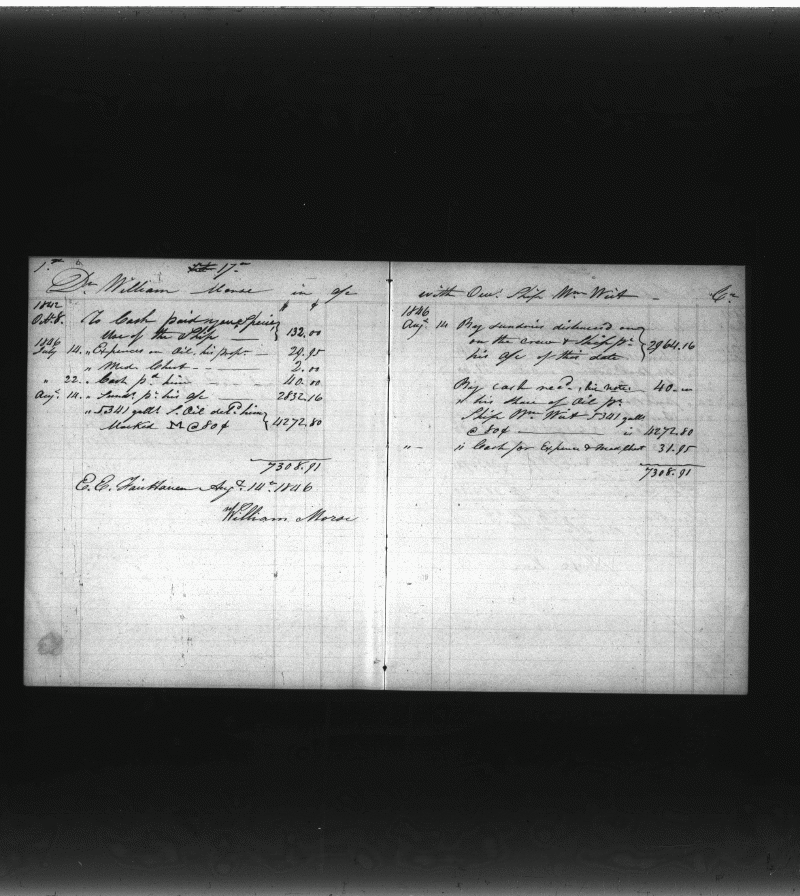 17.
Dr. William Morse in a/c
1842
Oct. 8. To Cash paid
Use of the Ship — 132.00
1846
July 14. " Expences on Oil, his prop. — 29.95
" Med. Chest — 2.00
" 22. " Cash pd. him — 40.00
Augt. 14. " Sunds. pr. his a/c — 2832.16
" 5341 galls S. Oil deld. him
Marked M @ 80¢ 4272.80
7308.91
E. E. Fairhaven Augt. 14th. 1846
William Morse
with Ship Wm Wirt — Cr.
1846
Augt. 14 By sundries disbursed on
on the crew & Ship pr.
his a/c of this date 2964.16
By cash recd., his note 40.00
" his share of Oil pr.
Ship Wm Wirt 5341 galls
@ 80¢ — is 4272.80
" — " Cash for Expence & Med. Chest 31.95
7308.91